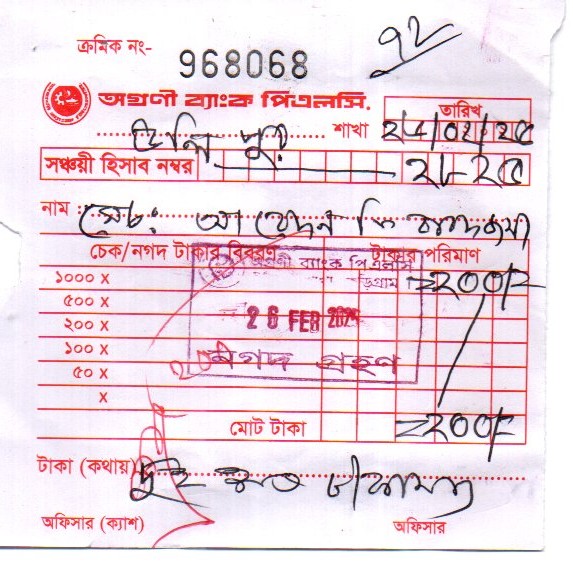 ক্রমিক নং- 968068
৭২
অগ্রণী ব্যাংক পিএলসি.
তারিখ
উলিপুর শাখা ২৫/০২/২৫
সঞ্চয়ী হিসাব নম্বর ২৮২৫
নাম : মোট: আবেদন ফি
চেক/নগদ টাকার বিবরণ টাকার পরিমাণ
১০০০ x =২০০/=
৫০০ x
২০০ x
১০০ x
৫০ x
x
অগ্রণী ব্যাংক পিএলসি
কুড়িগ্রাম
26 FEB 2025
নগদ গ্রহণ
মোট টাকা =২০০/=
টাকা (কথায়) দুই শত টাকা মাত্র
অফিসার (ক্যাশ) অফিসার